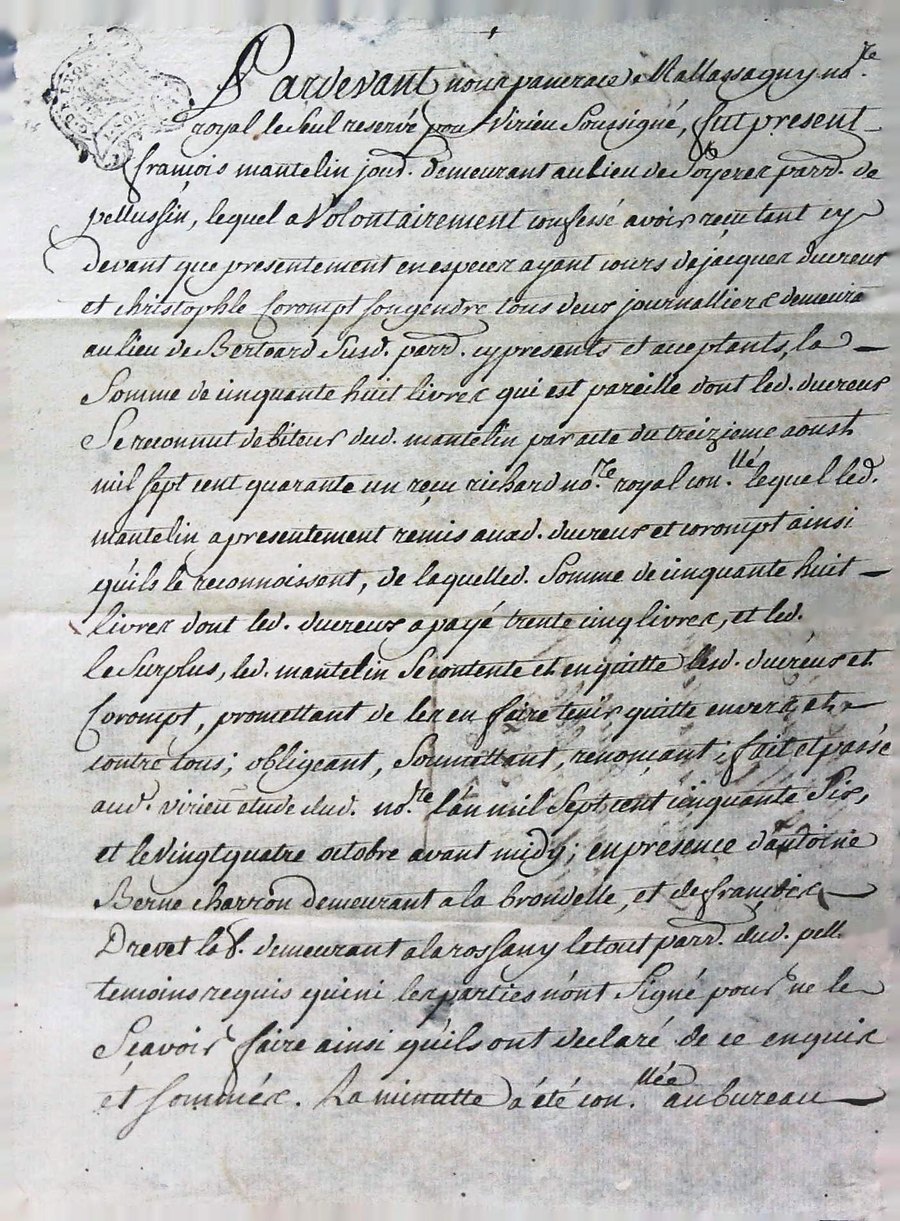 Pardevant nous pancrace Mallassagny no.re
royal le seul reservé pour Virieu soussigné, fut present
françois mantelin jour. demeurant au lieu de parr. de
pellussin, lequel a volontairement confessé avoir reçu tant cy
devant que presentement en especes ayant cours de jacques ducreux
et christophle Corompt son gendre tous deux journalliers demeura
au lieu de Berteard susd. parr. cy presents et acceptants, la
somme de cinquante huit livres qui est pareille dont led. ducreux
se reconnut debiteur dud. mantelin par acte du treizieme aoust
mil sept cent quarante un reçu richard no.re royal con.llé lequel led.
mantelin a presentement remis auxd. ducreux et corompt ainsi
qu'ils le reconnoissent, de laquelled. somme de cinquante huit
livres dont led. ducreux a payé trente cinq livres, et led.
le surplus, led. mantelin se contente et en quitte lesd. ducreux et
Corompt, promettant de les en faire tenir quitte envers et
contre tous; obligeant, soumettant, renonçant; fait et passé
aud. virieu étude dud. no.re l'an mil sept cent cinquante six,
et le vingt quatre octobre avant midy; en présence d'antoine
Berne charron demeurant a la brondelle, et de françois
Drevet lab. demeurant a la rossany le tout parr. dud. pell.
temoins requis qui ni les parties n'ont signé pour ne le
sçavoir faire ainsi qu'ils ont déclaré de ce enquis
et sommés. La minutte a été con.llée au bureau